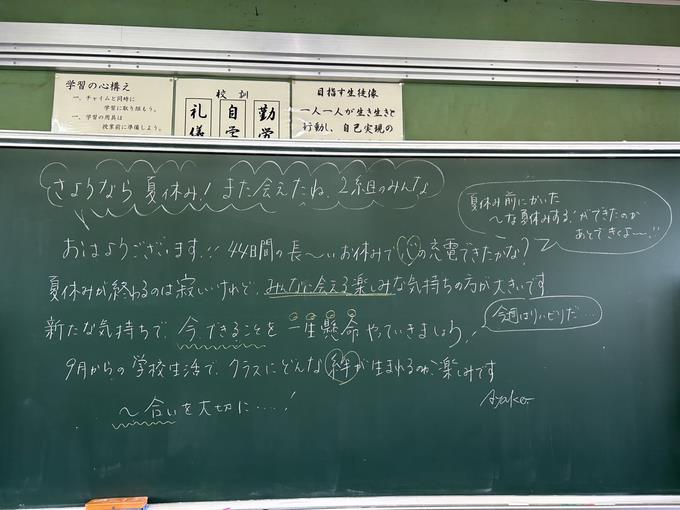 学習の心構え
一、チャイムと同時に
学習に取り組もう。
一、学習の用具は
授業前に準備しよう。
校訓
礼儀
自学
勤労
目指す生徒像
一人一人が生き生きと
行動し、自己実現の
さようなら夏休み！また会えたね、2組のみんな
夏休み前にかいた
〜な夏休みする！ができたのか
あとできくよ〜!!
おはようございます!! 44日間の長〜いお休みで心の充電できたかな？
夏休みが終わるのは寂しいけれど、みんなに会える楽しみな気持ちの方が大きいです
新たな気持ちで、今、できることを一生懸命やっていきましょう！
今週はリハビリだ…
9月からの学校生活で、クラスにどんな絆が生まれるのか楽しみです
〜合いを大切に……！
Ayako